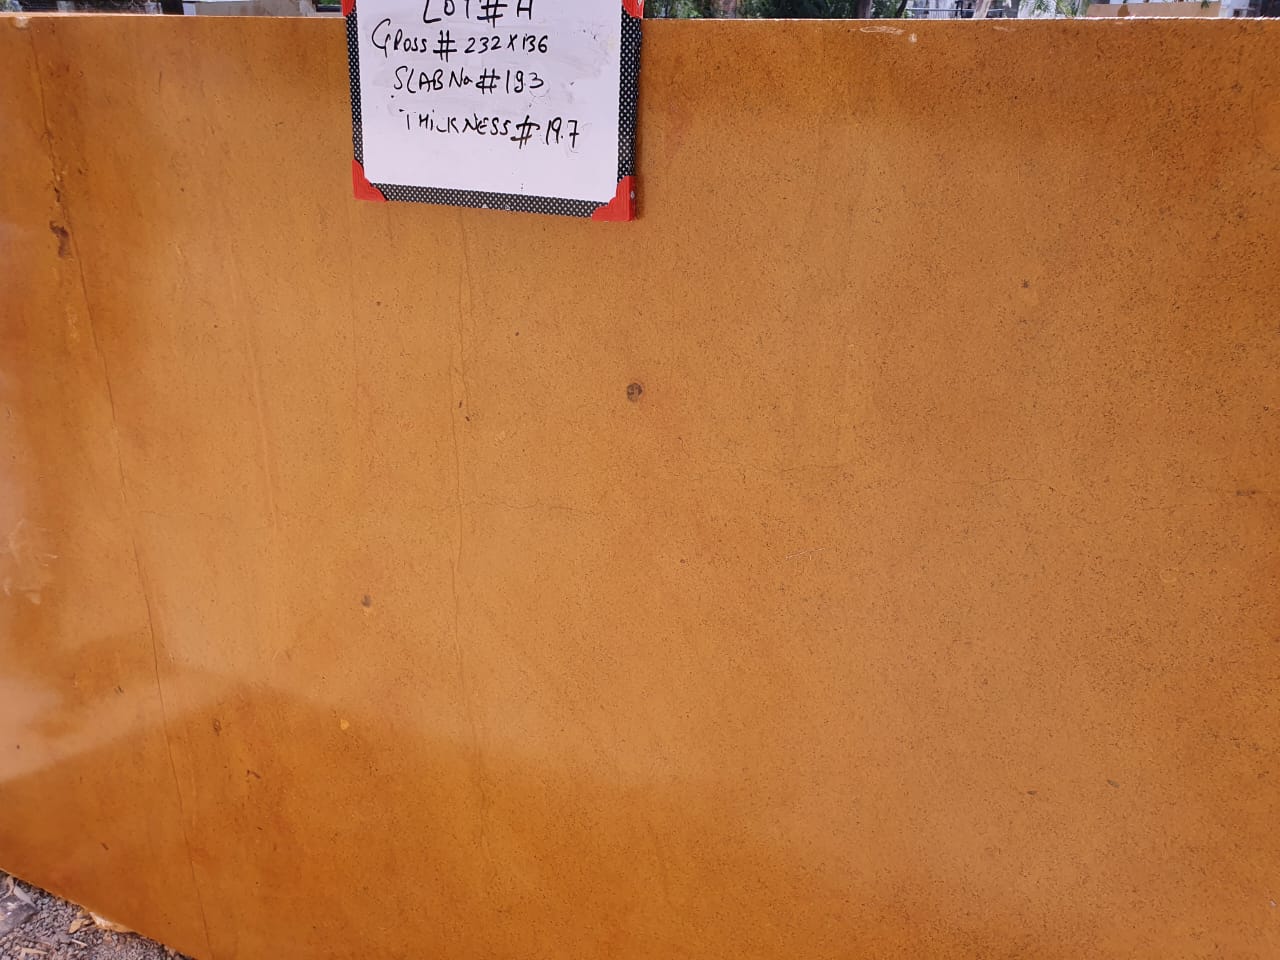 LOT # H
GROSS # 232 X 136
SLAB No # 193
THICKNESS # 19.7